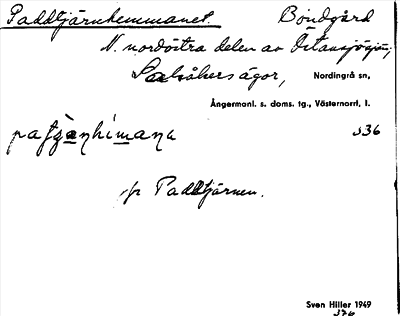 Paddtjärnhemmanet. Bondgård
N. nordöstra delen av Östansjösjön,
Salsåkers ägor, Nordingrå sn,
Ångermanl. s. doms. tg., Västernorrl. l.
536
Paddtjärnen.
Sven Hiller 1949